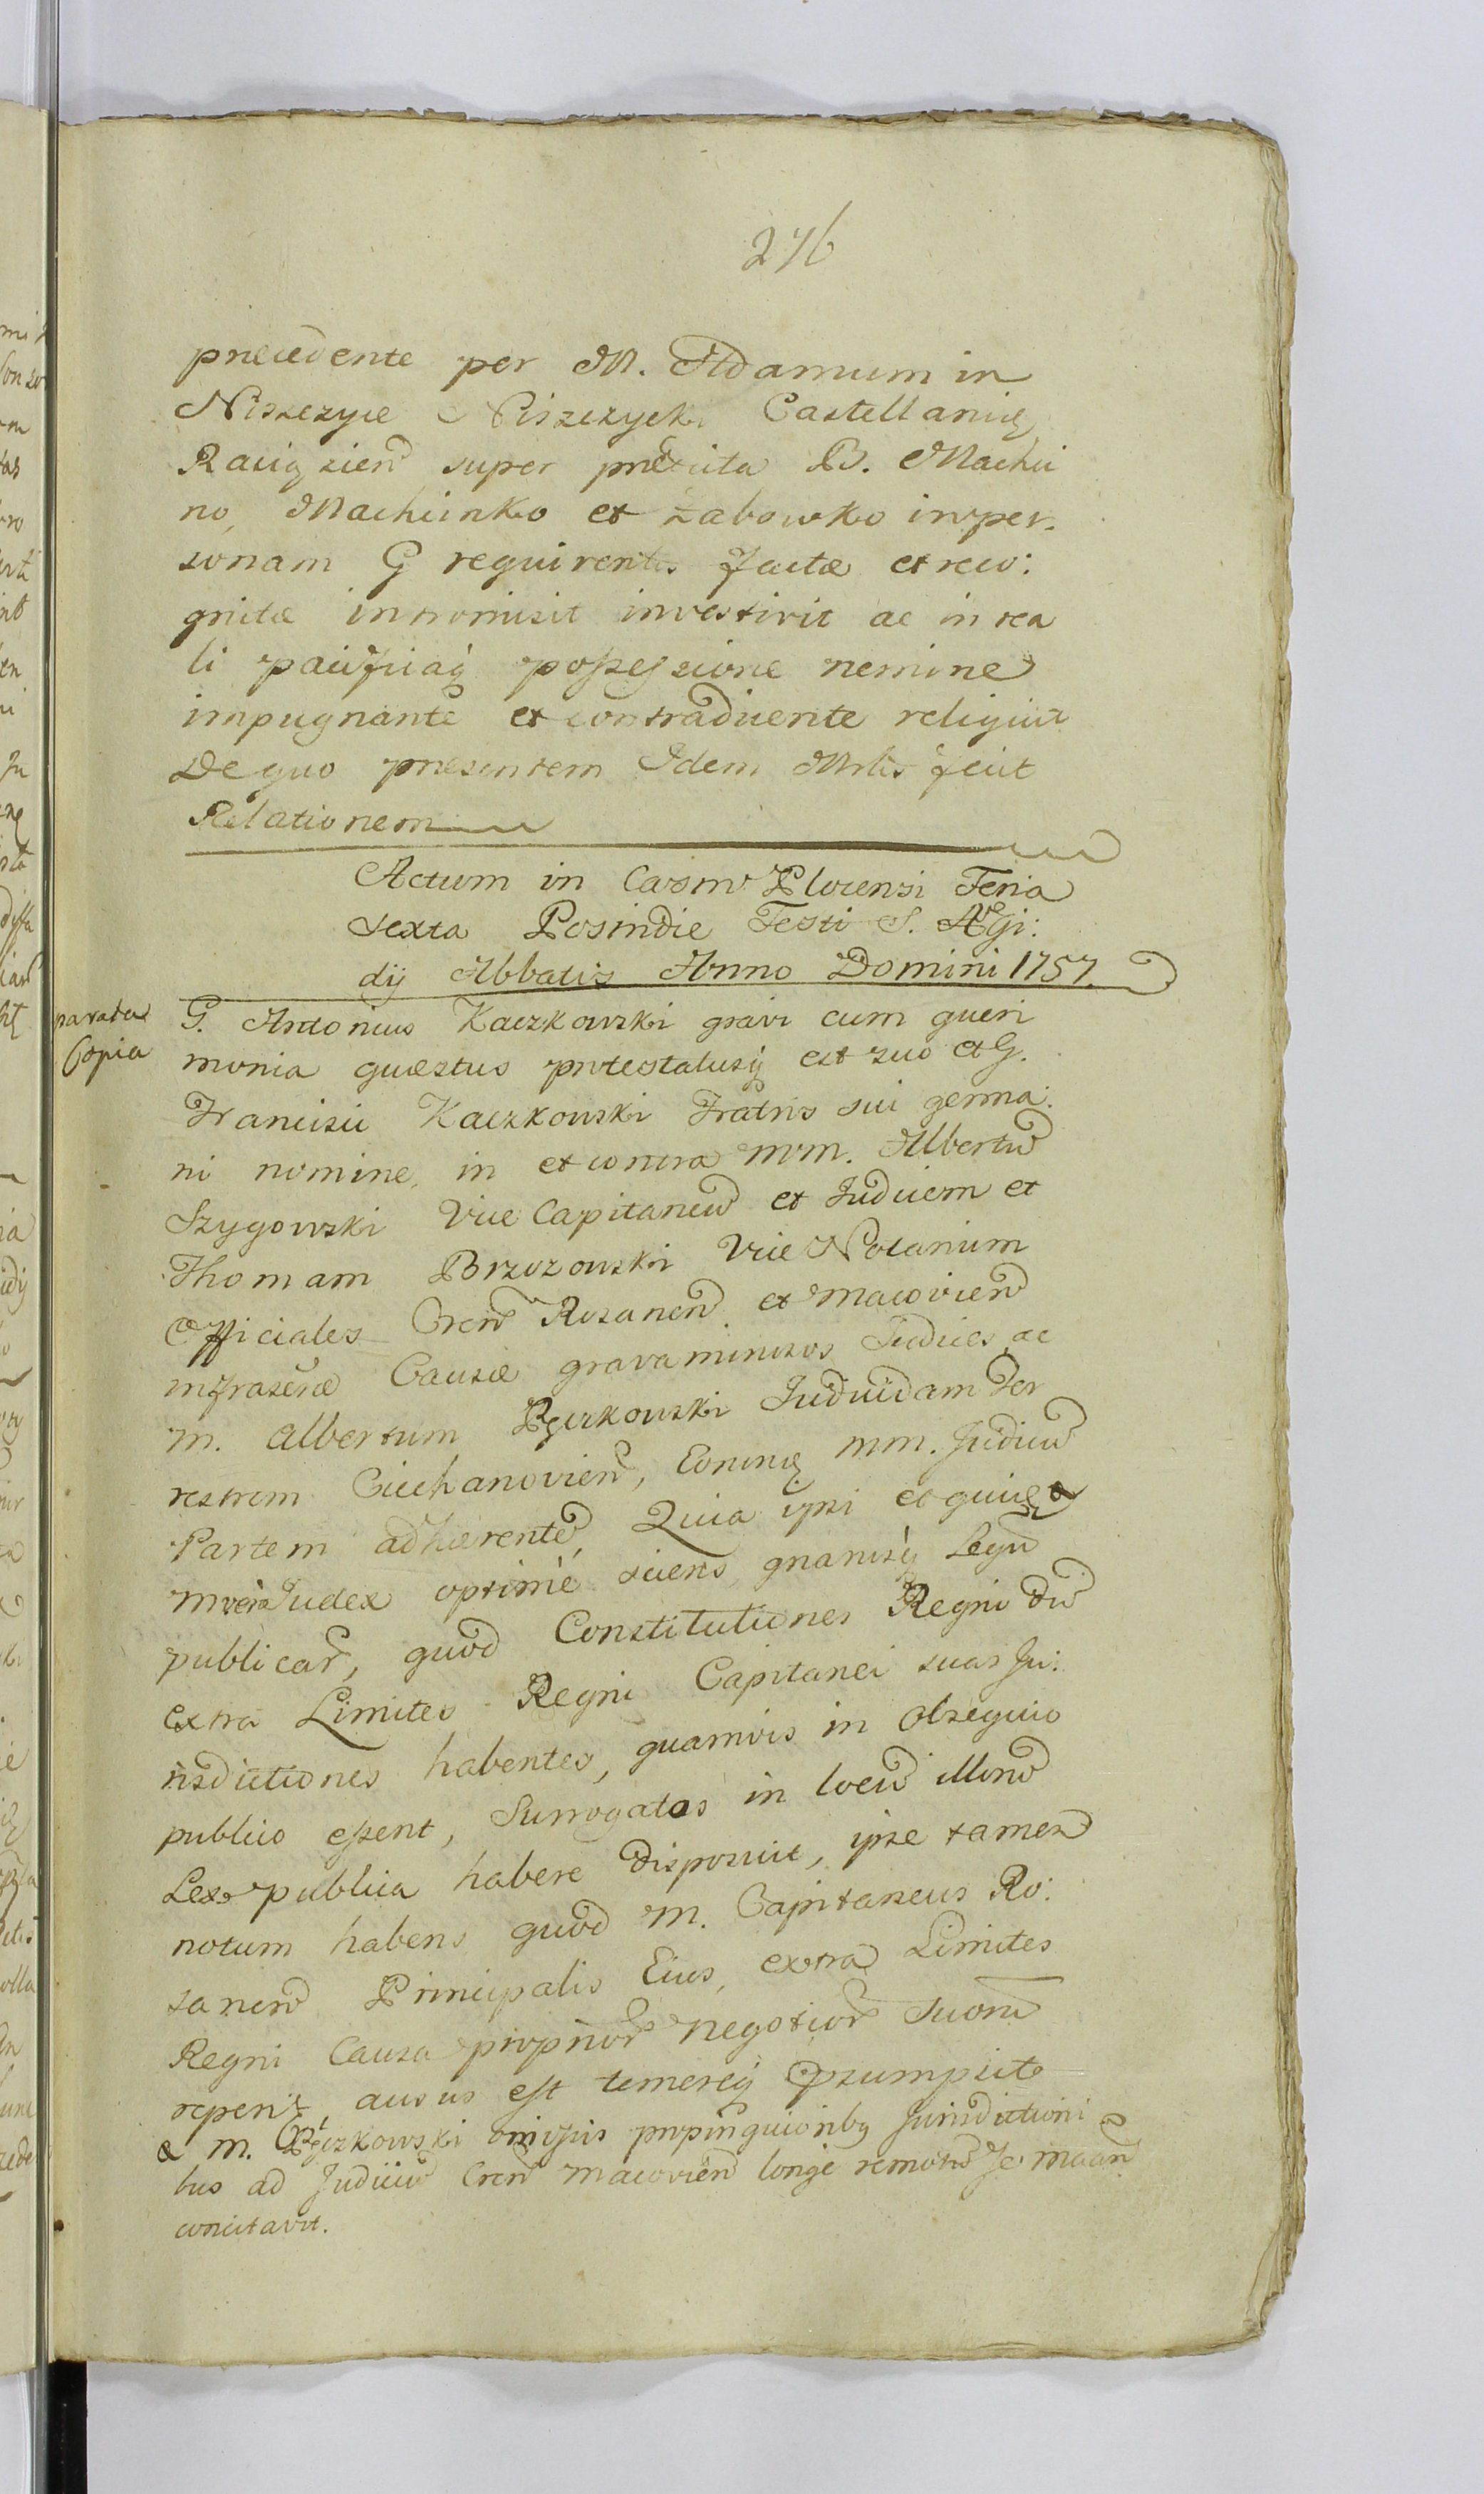 276
præcedente per M. Adamum in
Niszczyce Niszczycki Castellanię
Raciązien super præcita B. Machci
no, Machcinko et Żabowko in per-
sonam G requirentis factæ et reco:
gnitæ intromisit investivit ac in rea
li pacificaq possessione nemine
impugnante et contradicente reliquit
De quo præsentem Idem Mrlis fecit
Relationem
Actum in Castro Plocensi Feria
sexta Postridie Festi S. Ægi:
dij Abbatis Anno Domini 1757.
parata
Copia
G. Antonius Kaczkowski gravi cum queri
monia questus protestatusq est suo et G.
Francisci Kaczkowski Fratris sui germa:
ni nomine, in et contra mm. Albertum
Szygowski Vice Capitaneum et Judicem et
Thomam Brzozowski Vice Notarium
Officiales Cren Rosanen et Macovien
infrascræ Causæ gravaminosos Judices, ac
M. Albertum Pęczkowski Judicidam Ter
restrem Ciechanovien, Eorumq mm. Judicum
Partem adhærentem, Quia ipsi et quivis
Judex optimè sciens gnarusq Legum
publicar, quod Constitutiones Regni dum
extra Limites Regni Capitanei suas Ju:
risdictiones habentes, quamvis in Obsequio
publico essent, Surrogatos in locum illorum
Lex publica habere disposuit, ipse tamen
notum habens quod M. Capitaneus Ro:
sanen Principalis Eius, extra Limites
Regni Causa proprior negotior suorum
reperit, ausus est temereq præsumpsit
& M. Pęczkowski omissis propinquioribq Jurisdictioni
bus ad Judicium Cren Macovien longè remotum se
concitavit.